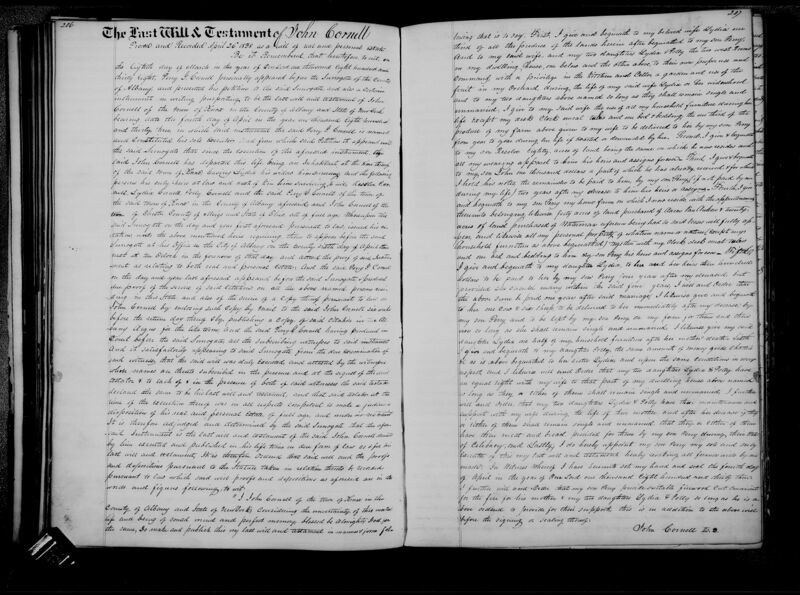 206
The Last Will & Testament of John Cornell
Proved and Recorded April 26th 1838 as a will of real and personal estate
Be it Remembered that heretofore to wit on
the Eighth day of March in the year of our Lord one thousand eight hundred and
thirty eight, Perry G Cornell personally appeared before the Surrogate of the County
of Albany and presented his petition to the said Surrogate and also a certain
instrument in writing purporting to be the last will and testament of John
Cornell of the town of in the County of Albany and State of New York
bearing date the fourth day of April in the year one thousand eight hundred
and thirty three in which said instrument the said Perry G Cornell is named
and Constituted his sole executor And from which said Petition it appeared unto
the said Surrogate that since the execution of the aforesaid instrument the
said John Cornell has departed this life being an Inhabitant at the time thereof
of the said town of leaving Lydia his widow him surviving and the following
persons his only heirs at law and next of kin him surviving, to wit
Lydia Cornell Polly Cornell and the said Perry G Cornell of the town of
the said town of in the County of Albany aforesaid and John Cornell of the
town of County of and State of Ohio all of full age Whereupon the
said Surrogate on the day and year first aforesaid pursuant to law issued his
citation unto the above mentioned heirs requiring them to appear before the said
Surrogate at his office in the City of Albany on the twenty sixth day of April then
next at ten o'clock in the forenoon of that day and attend the proof of said Instru
ment as relating to both real and personal Estate. And the said Perry G Cornell
on the day and year last aforesaid appeared before the said Surrogate & produced
due proof of the service of said Citation on all the above named persons resi
ding in this State and also of the service of a copy thereof pursuant to law on
John Cornell by enclosing such Copy by mail to the said John Cornell
before the return day thereof & by publishing a Copy of said citation in the Al
bany Argus for the like term And the said Perry G Cornell having produced in
Court before the said Surrogate all the subscribing witnesses to said instrument
And it satisfactorily appearing to said Surrogate from the due examination of
said witnesses that the said will was duly executed and attested by the witnesses
whose names are thereto subscribed in the presence and at the request of the said
testator & to each of & in the presence of both of said witnesses the said testator
declared the same to be his last will and testament, and that said testator at the
time of the execution thereof was in all respects competent to make a
disposition of his real and personal estate of full age and under no restraint
It is therefore adjudged and determined by the said Surrogate that the afore
said Instrument is the last will and testament of the said John Cornell
by him executed and published in his life time in due form of law as for his
last will and testament. It is therefore Ordered that said will and the proofs
and depositions pursuant to the Statute taken in relation thereto be recorded
pursuant to law which said proofs and depositions as aforesaid are in the
words and figures following, to wit
"I John Cornell of the town of in the
County of Albany and State of New York considering the uncertainty of this mortal
life and being of sound mind and perfect memory blessed be Almighty God for
the same, Do make and publish this my last will and testament in manner & form fol
207
lowing that is to say. First, I give and bequeath to my beloved wife Lydia one
third of all the produce of the lands herein after bequeathed to my son Perry
And to my said wife and my two daughters Lydia & Polly the two west rooms
in my dwelling House, one below and the other above, to their own proper use and
Command, with a privilege in the Kitchen and Cellar a garden and use of the
fruit in my Orchard, during the life of my said wife Lydia or her widowhood
and to my two daughters above named so long as they shall remain single and
unmarried. I give to my said wife the use of all my household furniture during her
life Except my desk Clock and one bed & bedding, the one third of the
produce of my farm above given to my wife to be delivered to her by my son Perry
from year to year during her life if wanted or demanded by her. Second, I give & bequeath
to my son eighty acres of land being the same on which he now resides and
all my wearing apparel to him his heirs and assigns forever. Third, I give & bequeath
to my son John one thousand dollars a part of which he has already received & for which
I hold his notes the remainder to be paid to him by my son Perry if not paid by me
during my life two years after my decease to him his heirs or assigns. Fourth, I give
and bequeath to my son Perry my home farm on which I now reside with the appurtenances
thereunto belonging likewise fifty acres of land purchased of & twenty
acres of land purchased of
and likewise all my personal property of whatever name or nature except my
household furniture as above bequeathed, together with my Clock desk
and one bed and bedding to him my son Perry his heirs and assigns forever. Fifth
I give and bequeath to my daughter Lydia to her and her heirs three hundred
dollars to be paid to her by my son Perry four years after my decease, but
provided she should marry within the said four years, I will and Order that
the above sum be paid one year after said marriage. I likewise give and bequeath
to her one Cow & six sheep to be delivered to her immediately after my decease by
my son Perry and to be kept by my son Perry on my farm for them and their
use so long as she shall remain single and unmarried. I likewise give my said
daughter Lydia one half of my household furniture after her mother's death. Sixth
I give and bequeath to my daughter Polly the same amount of money goods chattels
&c as is above bequeathed to her sister Lydia and upon the same conditions in every
respect, and I likewise will and Order that my two daughters Lydia & Polly have
an equal right with my wife to that part of my dwelling house above named
so long as they or either of them shall remain single and unmarried. I further
will and Order that my two daughters Lydia & Polly have their maintenance and
support with my wife during the life of their mother and after her decease if they
or either of them shall remain single and unmarried that they or either of them
have their meat and bread provided for them by my son Perry during their state
of Celibacy, and Lastly, I do hereby appoint my son Perry my sole and only
Executor of this my last will and testament hereby revoking all former wills by me
made. In Witness Whereof I have hereunto set my hand and seal the fourth day
of April in the year of Our Lord one thousand Eight hundred and thirty three.
I further will and Order that my son Perry provide suitable firewood cut convenient
for the fire for his mother & my two daughters Lydia & Polly so long as he is a
bove ordered to provide for their support, this is in addition to the above will
before the signing & sealing thereof.
John Cornell L. S.